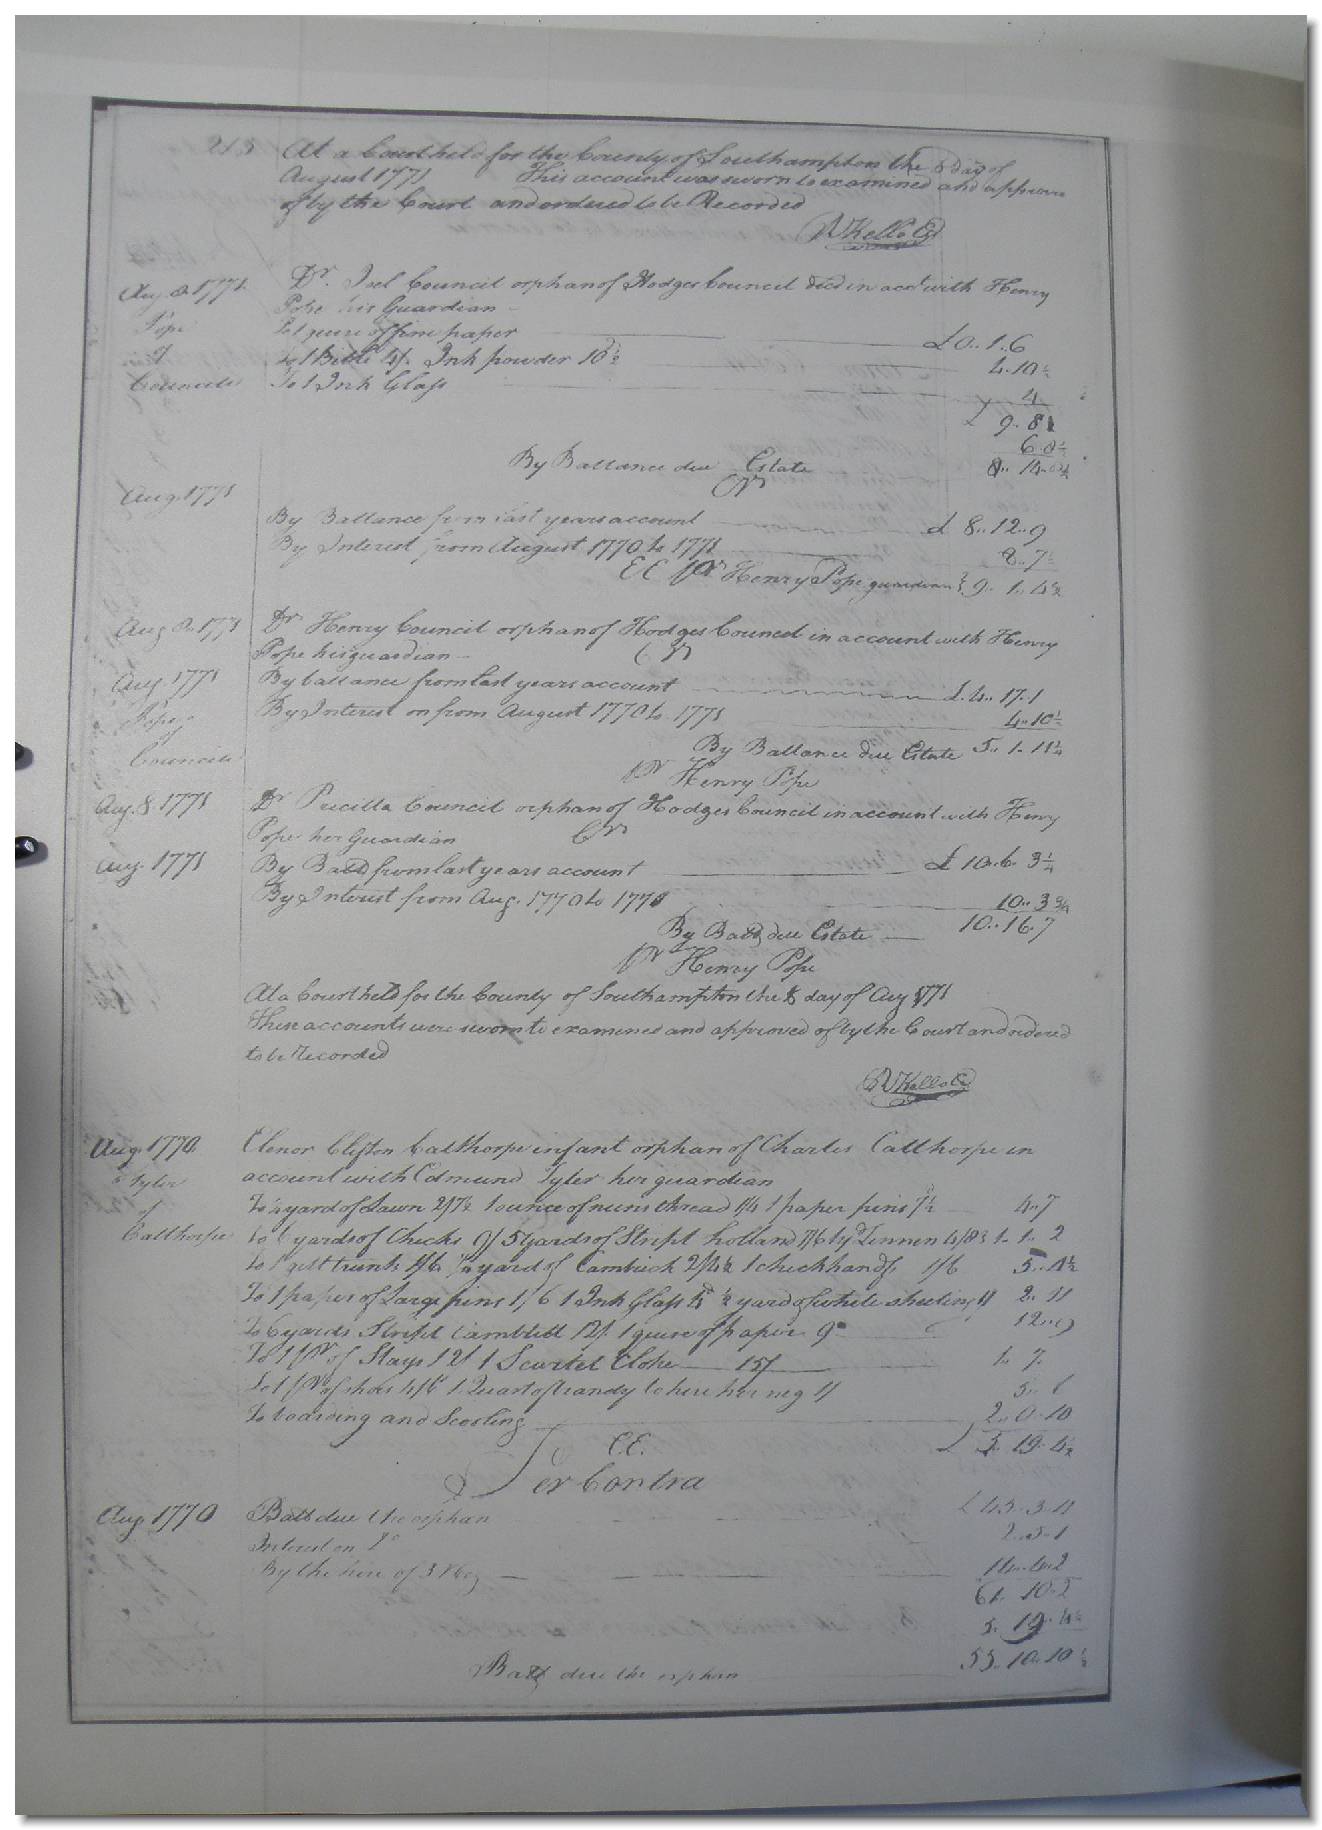 213 At a Court held for the County of Southampton the 8 day of
August 1771 This account was sworn to examined and approve
of by the Court and ordered to be Recorded
R Kello Cl
Aug 8 1771 Dr. Joel Council orphan of Hodges Council decd in acct with Henry
Pope his Guardian
Pope To 1 quire of fine paper £0..1.6
& To 1 Bible 4/. Ink powder 10½ 4.10½
Councils To 1 Ink Glass 4
£ 9. 8
6.8½
By Ballance due Estate 8.. 14..
Cr
Aug. 1771
By Ballance from last years account £ 8..12..9
By Interest from August 1770 to 1771 8..7½
EE pr Henry Pope guardian 9.. 1.. 4½
Aug 8.. 1771 Dr Henry Council orphan of Hodges Council in account with Henry
Pope his guardian Cr
Aug. 1771 By ballance from last years account £.4.. 17.1
Pope By Interest on from August 1770 to 1771 4..10½
& By Ballance due Estate 5.. 1. 11½
Councils pr Henry Pope
Aug. 8 1771 Dr Pricilla Council orphan of Hodges Council in account with Henry
Pope her Guardian Cr
Aug. 1771 By Balld from last years account £ 10..6. 3¼
By Interest from Aug. 1770 to 1771 10.. 3¾
By Balls due Estate 10..16.7
pr Henry Pope
At a Court held for the County of Southampton the 8 day of Aug 1771
These accounts were sworn to examined and approved of by the Court and ordered
to be Recorded
R Kello Cl
Aug. 1770 Elenor Clifton Calthorpe infant orphan of Charles Calthorpe in
Tyler account with Edmund Tyler her guardian
& To yard of Lawn 2/7½ 1 ounce of nuns thread 1/4 1 paper pins 7½ 4..7
Calthorpe To 6 yards of Checks 9/ 5 yards of Stript holland 7/6 1 yd Linnen 4/8 1.. 1.. 2
To 1 gilt trunk 1/6 yard of Cambrick 2/4½ 1 check handf 1/6 5..4½
To 1 paper of Large pins 1/6 1 Ink Glass 4d ½ yard of white sheeting 2.. 11
To 6 yards Stript Camblett 12/. 1 quire of paper 9d 12..9
To 1 pr of Stays 12/ 1 Scarlet Cloke 15/ 1. 7.
To 1 pr of shoes 4/6 1 Quart of brandy to hire her neg 1/ 5.. 6
To boarding and Scooling 2..0.10
E.E. £ 5. 19. 4½
Per Contra
Aug 1770 Balls due the orphan £ 43.3.11
Interest on Do 2..5.1
By the hire of 3 Neg 14..4.2
61. 10.2
5. 19. 4½
Balls due the orphan 55..10..10½